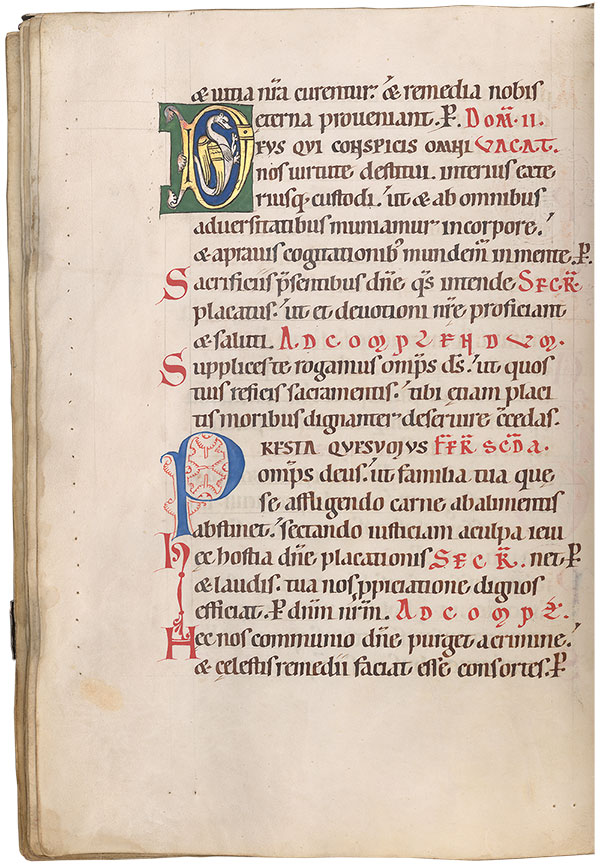 & uitia nr̄a curentur. & remedia nobis
eterna proueniant. P. DOM̄·II·
DEUS QUI CONSPICIS OMNI VACAT.
nos uirtute destitui. interius exte
riusq; custodi. ut & ab omnibus
aduersitatibus muniamur incorpore.
& aprauis cogitationib; mundem̄ in mente. P.
Sacrificiis p̄sentibus dn̄e qs̄ intende SECR̄.
placatus. ut et deuotioni nr̄e proficiant
& saluti. AD COMPLENDUM.
Supplices te rogamus omp̄s ds̄. ut quos
tuis reficis sacramentis. tibi etiam placi
tis moribus dignanter deseruire c̄cedas.
PRESTA QUESUMUS FER̄ SCD̄A.
omp̄s deus. ut familia tua que
se affligendo carne abalimentis
abstinet. sectando iusticiam aculpa ieiu
Hec hostia dn̄e placationis SECR̄. net. P
& laudis. tua nos ppiciatione dignos
efficiat. P. dn̄m nr̄m. AD COMPL̄.
Hec nos communio dn̄e purget acrimine.
& celestis remedii faciat esse consortes. P